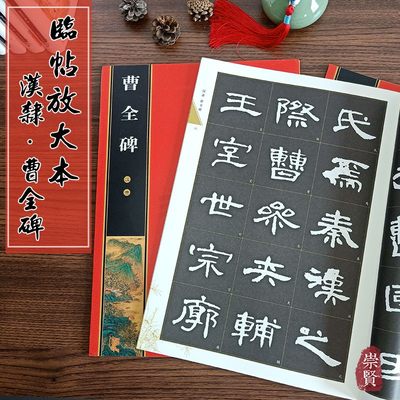 臨帖放大本
漢隸·曹全碑
曹全碑
氏焉秦漢之
際曹參夾輔
王室世宗廓
崇賢